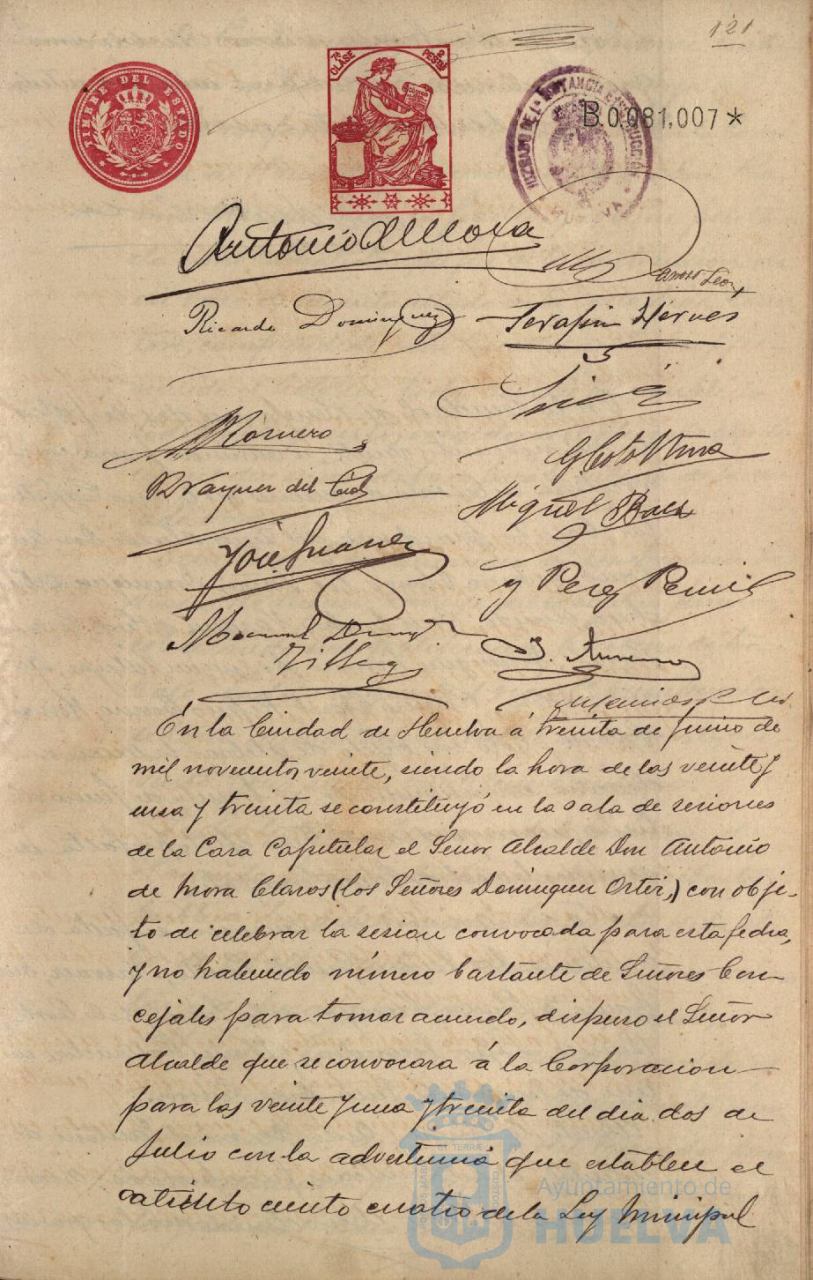 121
7ª CLASE 2 PESETAS
TIMBRE DEL ESTADO
JUZGADO DE 1ª INSTANCIA E INSTRUCCIÓN
HUELVA
B.0.081,007*
Antonio de Mora
Ricardo Dominguez
Serafin Herves
Romero
G Coto Mora
R Vazquez del Cid
Miguel Baez
José Suarez
y Perez
Manuel Doming
Villeg
En la Ciudad de Huelva á treinta de Junio de
mil novecientos veinte, siendo la hora de las veinte y
una y treinta se constituyó en la sala de sesiones
de la Casa Capitular el Señor Alcalde Don Antonio
de Mora Claros (los Señores Dominguez Ortiz,) con obje-
to de celebrar la sesion convocada para esta fecha,
y no habiendo número bastante de Señores Con-
cejales para tomar acuerdo, dispuso el Señor
Alcalde que se convocara á la Corporacion
para las veinte y una y treinta del dia dos de
Julio con la advertencia que establece el
articulo ciento cuatro de la Ley Municipal
Ayuntamiento de
HUELVA